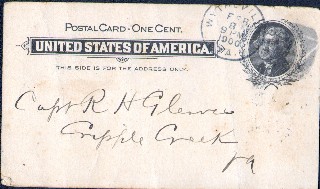 POSTAL CARD - ONE CENT.
UNITED STATES OF AMERICA.
THIS SIDE IS FOR THE ADDRESS ONLY.
WYTHEVILLE
FEB
9 PM
1900
VA.
Capt R H Gleaves
Cripple Creek
Va